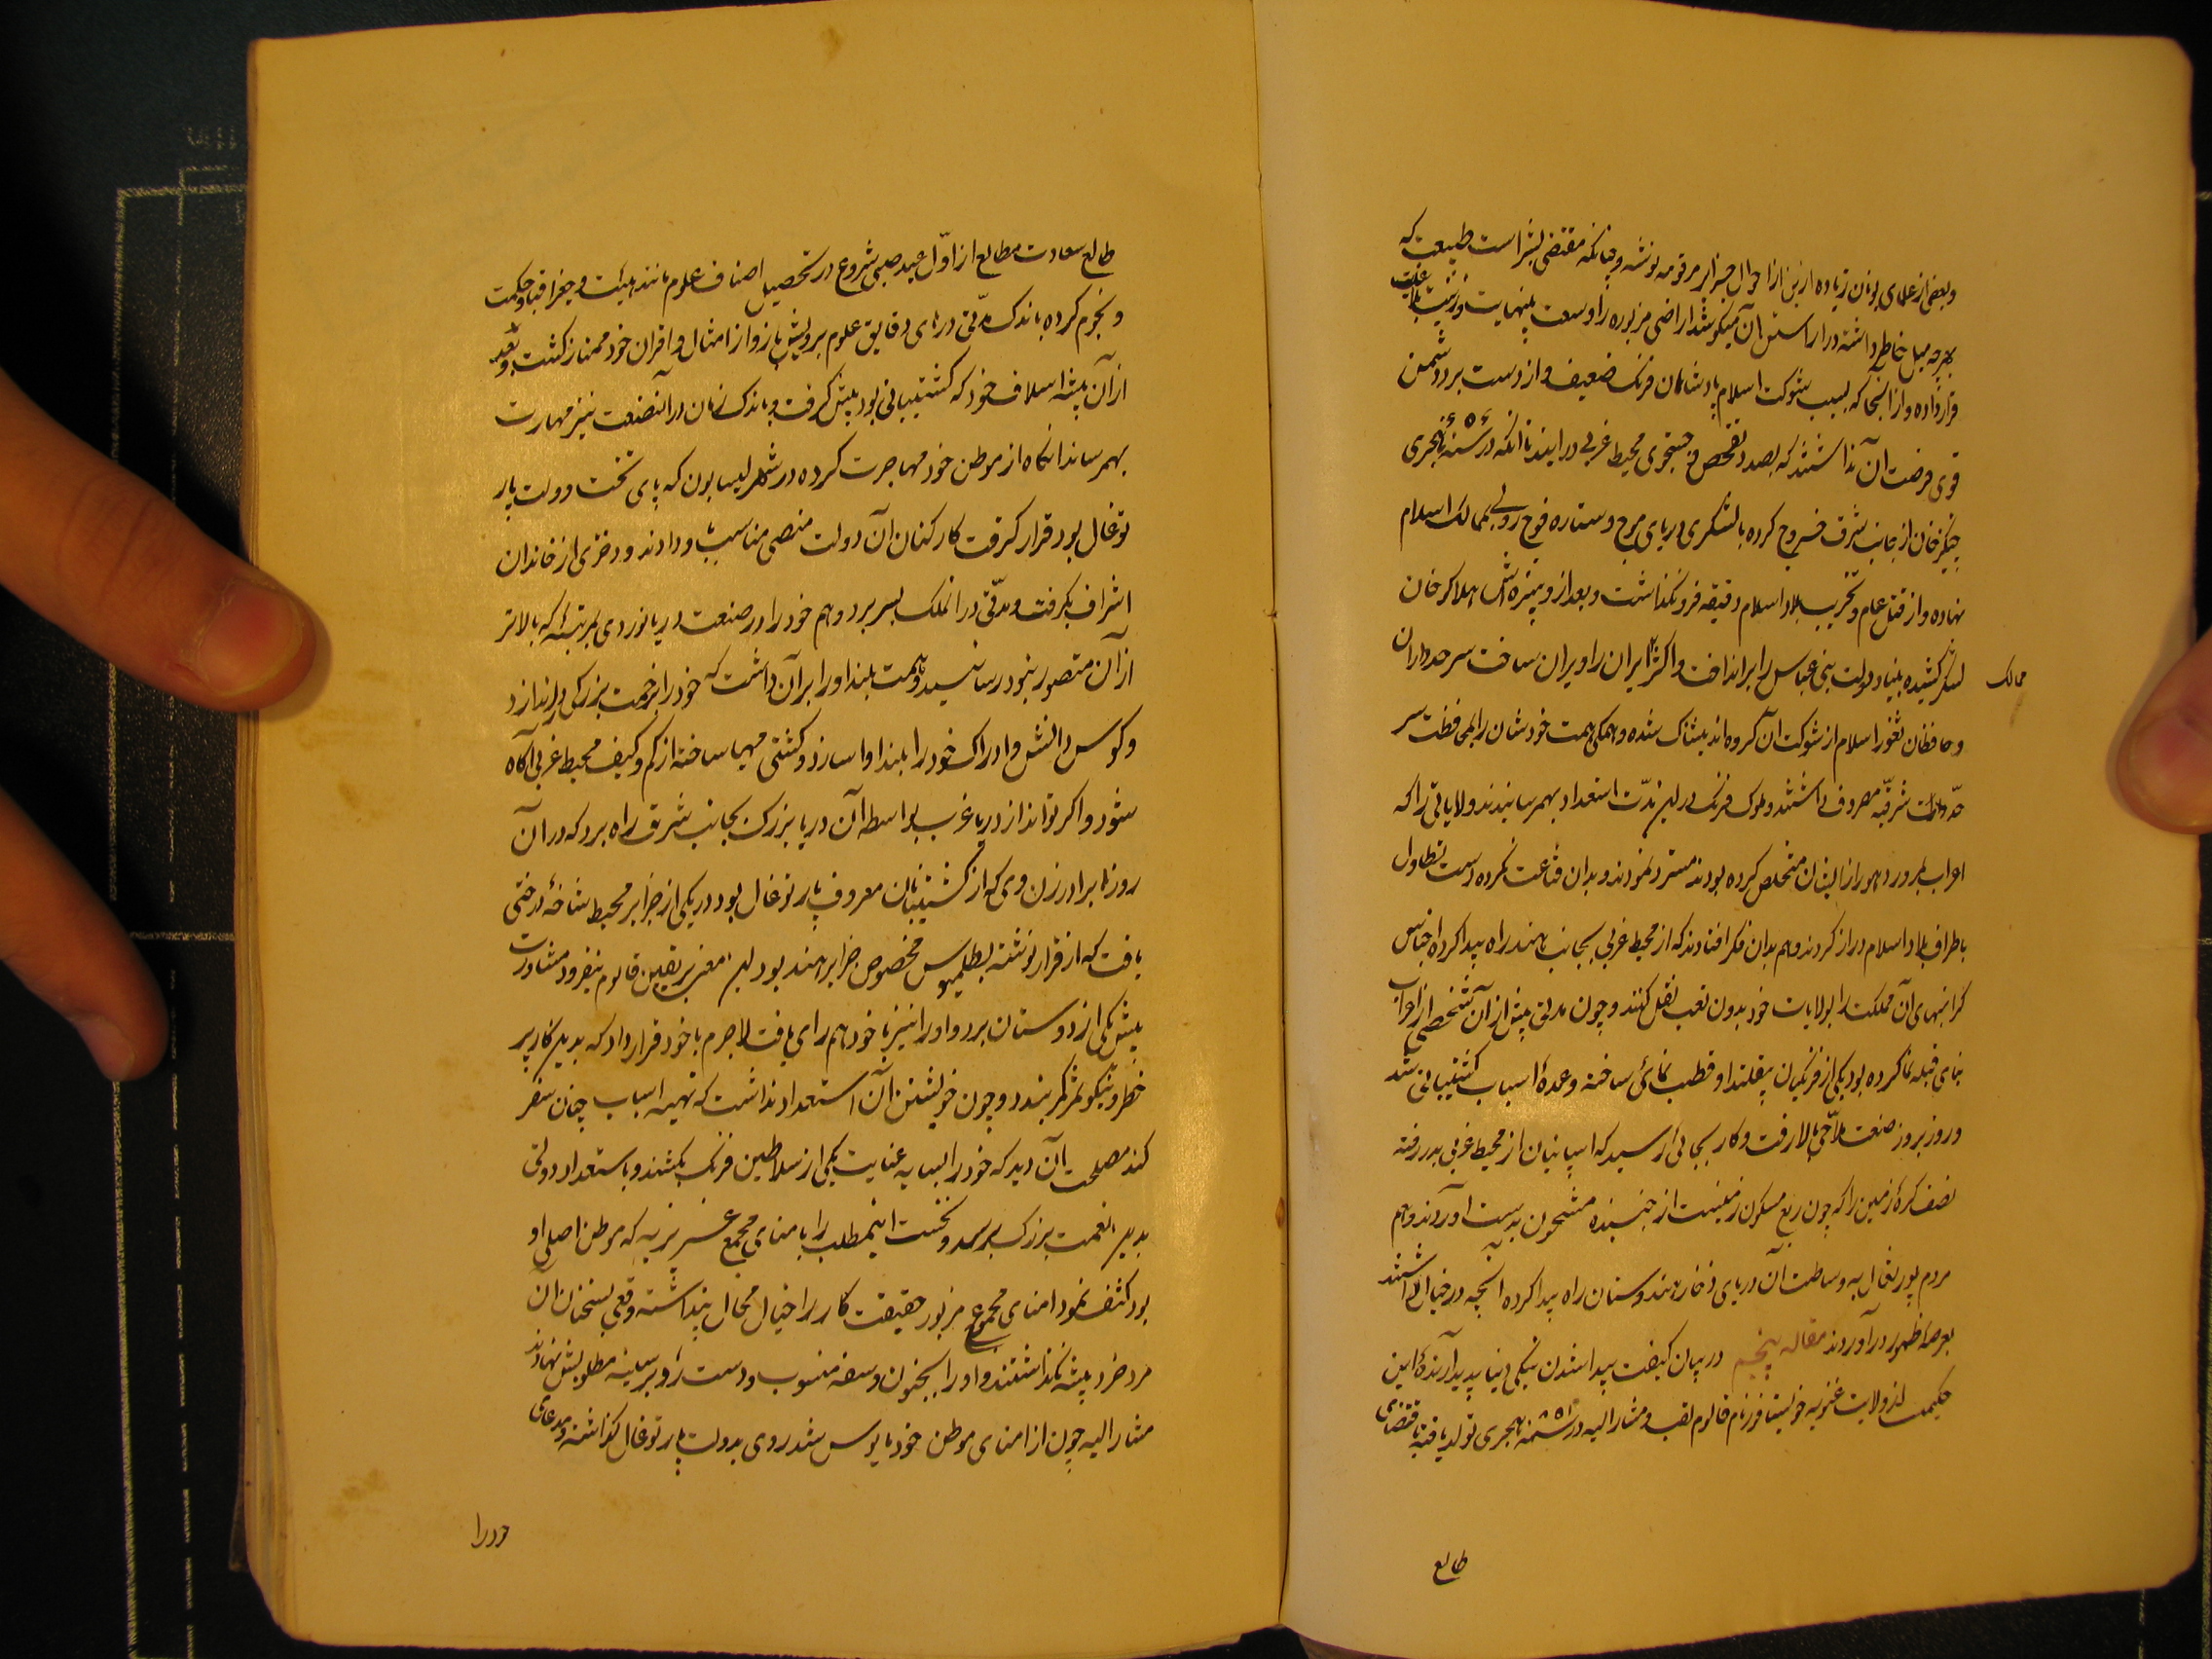 و بعضی از علمای یونان زیاده ازین از احوال جزایر مرقومه نوشته و چنانکه مقتضی بشر است طبیعت که
بهرچه میل خاطر داشته در آراستن آن میکوشد اراضی مزبوره را وسعت بینهایت و زینت بلاغایت
قرار داده و از آنجا که بسبب شوکت اسلام پادشاهان فرنک ضعیف و از دست برد دشمن
قوی فرصت آن نداشتند که بصدد تفحص و جستجوی محیط غربی در ایند تا انکه در سنه هجری
چنکیز خان از جانب شرق خروج کرده با لشکری دریای موج و ستاره فوج روی بممالک اسلام
نهاده و از قتل عام و تخریب بلاد اسلام دقیقه فرو نکذاشت و بعد از و نبیره اش هلاکو خان
لشکر کشیده بنیاد دولت بنی عباس را برانداخت و اکثر ایران را ویران ساخت سرحد داران
ممالک
و حافظان ثغور اسلام از شوکت آن کروه اندیشناک شده و همکی همت خودشان را بمحافظت سر
حدات شرقیه مصروف داشتند و ملوک فرنک در این مدت استعداد بهم رسانیدند و ولایاتی را که
اعراب بمرور دهور از ایشان متخلص کرده بودند مسترد نمودند و بدان قناعت نکرده دست تطاول
باطراف بلاد اسلام دراز کردند و هم بدان فکر افتادند که از محیط غربی بجانب هند راه پیدا کرده اجناس
کرانبهای آن مملکت را بولایات خود بدون تعب نقل کنند و چون مدتی پیش از آن شخصی از اعراب
بنای قبله نما کرده بود یکی از فرنکیان بتقلید او قطب نمائی ساخته و عمدهٔ اسباب کشتیبانی شد
و روز بروز صنعت ملاحی بالا رفت و کار بجائی رسید که اسپانیان از محیط غربی بدر رفته
نصف کرهٔ زمین را که چون ربع مسکون زمینست از جنبنده مشحون بدست آوردند و هم
مردم پورتغال به وساطت آن دریای ذخار بهندوستان راه پیدا کرده انچه در خیال داشتند
بعرصهٔ ظهور در آوردند مقاله پنجم در بیان کیفیت پیدا شدن ینکی دنیا پدید آرندهٔ این
حکیمی از ولایت غنویه خریستافور نام قالوم لقب و مشار الیه در سنه ۸۵۱ هجری تولد یافته باقتضای
طالع
طالع سعادت مطالع از اوّل عهد صبی شروع در تحصیل اصناف علوم مانند هیئت و جغرافیا و حکمت
و نجوم کرده باندک مدّتی درهای دقایق علوم برویش باز و از امثال و اقران خود ممتاز کشت و بعد
از آن پیشه اسلاف خود که کشتیبانی بود پیش کرفت و باندک زمان در آنصنعت نیز مهارت
بهمرساند انکاه از موطن خود مهاجرت کرده در شهر لیسابون که پای تخت دولت پار
توغال بود قرار کرفت کارکنان آن دولت منصبی مناسب باو دادند و دختری از خاندان
اشراف بکرفت و مدّتی در انملک بسر برد و هم خود را در صنعت دریانوردی بمرتبهٔ که بالاتر
از آن متصور نبود رسانید و همت بلند او را بر آن داشت که خود را بزحمت بزرکی در اندازد
و کوس دانش و ادراک خود را بلند اوا سازد و کشتی مهیا ساخته از کم و کیف محیط غربی آکاه
شود و اکر تواند از دریا غرب بواسطه آن دریا بزرک بجانب شرق راه برد که در آن
روزها برادر زن وی که از کشتیبانان معروف پارتوغال بود در یکی از جزایر محیط شاخهٔ درختی
یافت که از قرار نوشته بطلمیوس مخصوص جزایر هند بود این معنی بر یقین قالوم بیفزود مشاورت
پیش یکی از دوستان برد و او را نیز با خود هم رای یافت لاجرم با خود قرار داد که بدین کار پر
خطر و نیکو ثمر کمر بندد و چون خویشتن آن استعداد نداشت که تهیه اسباب چنان سفر
کند مصلحت آن دید که خود را بسایه عنایت یکی از سلاطین فرنک بکشند و باستعداد دولتی
بدین نعمت بزرک برسد و نخست اینمطلب را با امنای مجمع غنویه که موطن اصلی او
بود کشف نمود امنای مجمع مزبور حقیقت کار را خیال محال پنداشته وقعی بسخنان آن
مرد خرد پیشه نکذاشتند و او را بجنون و سفه منسوب و دست رد بر سینهٔ مطلوبش نهادند
مشار الیه چون از امنای موطن خود مایوس شد روی بدولت پارتوغال کذاشته و مدعای
خود را